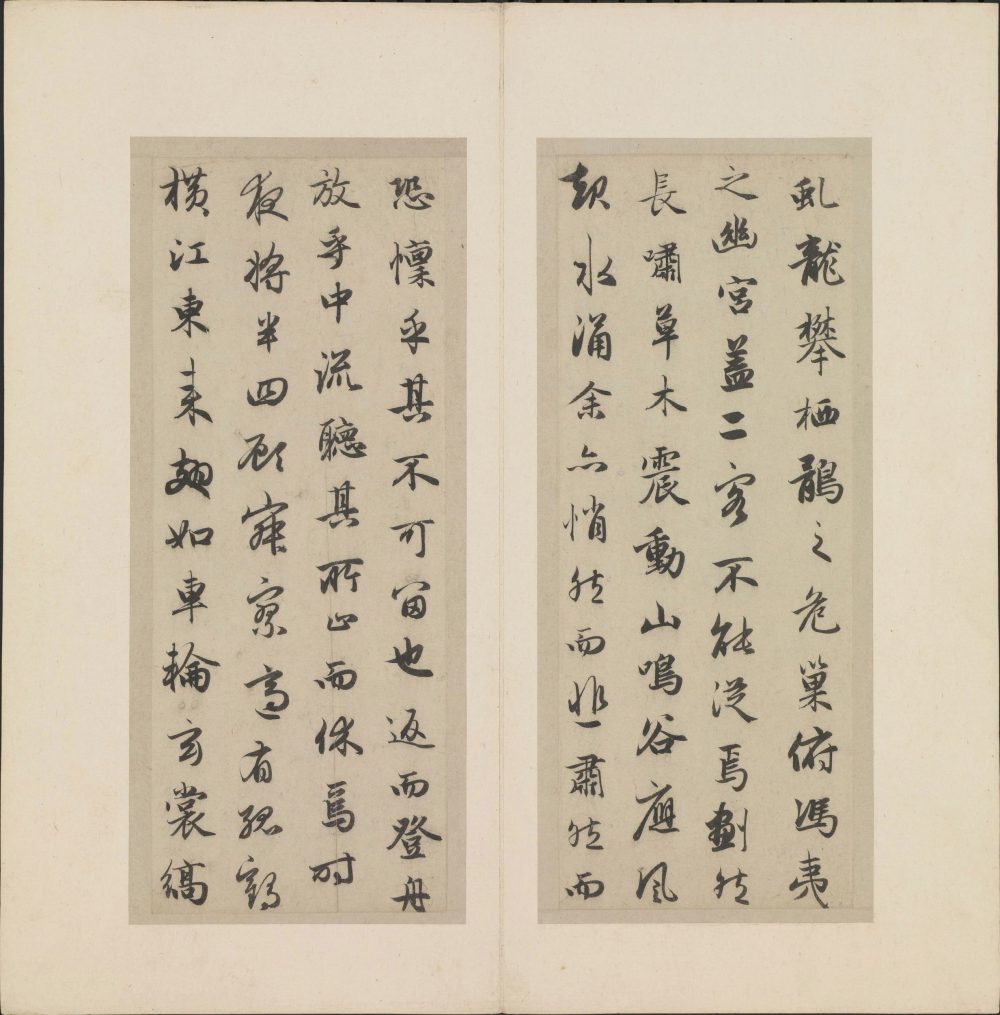 虬龍攀栖鶻之危巢俯馮夷
之幽宮蓋二客不能從焉劃然
長嘯草木震動山鳴谷應風
起水涌余亦悄然而悲肅然而
恐懍乎其不可留也返而登舟
放乎中流聽其所止而休焉時
夜將半四顧寂寥適有孤鶴
橫江東来翅如車輪玄裳縞